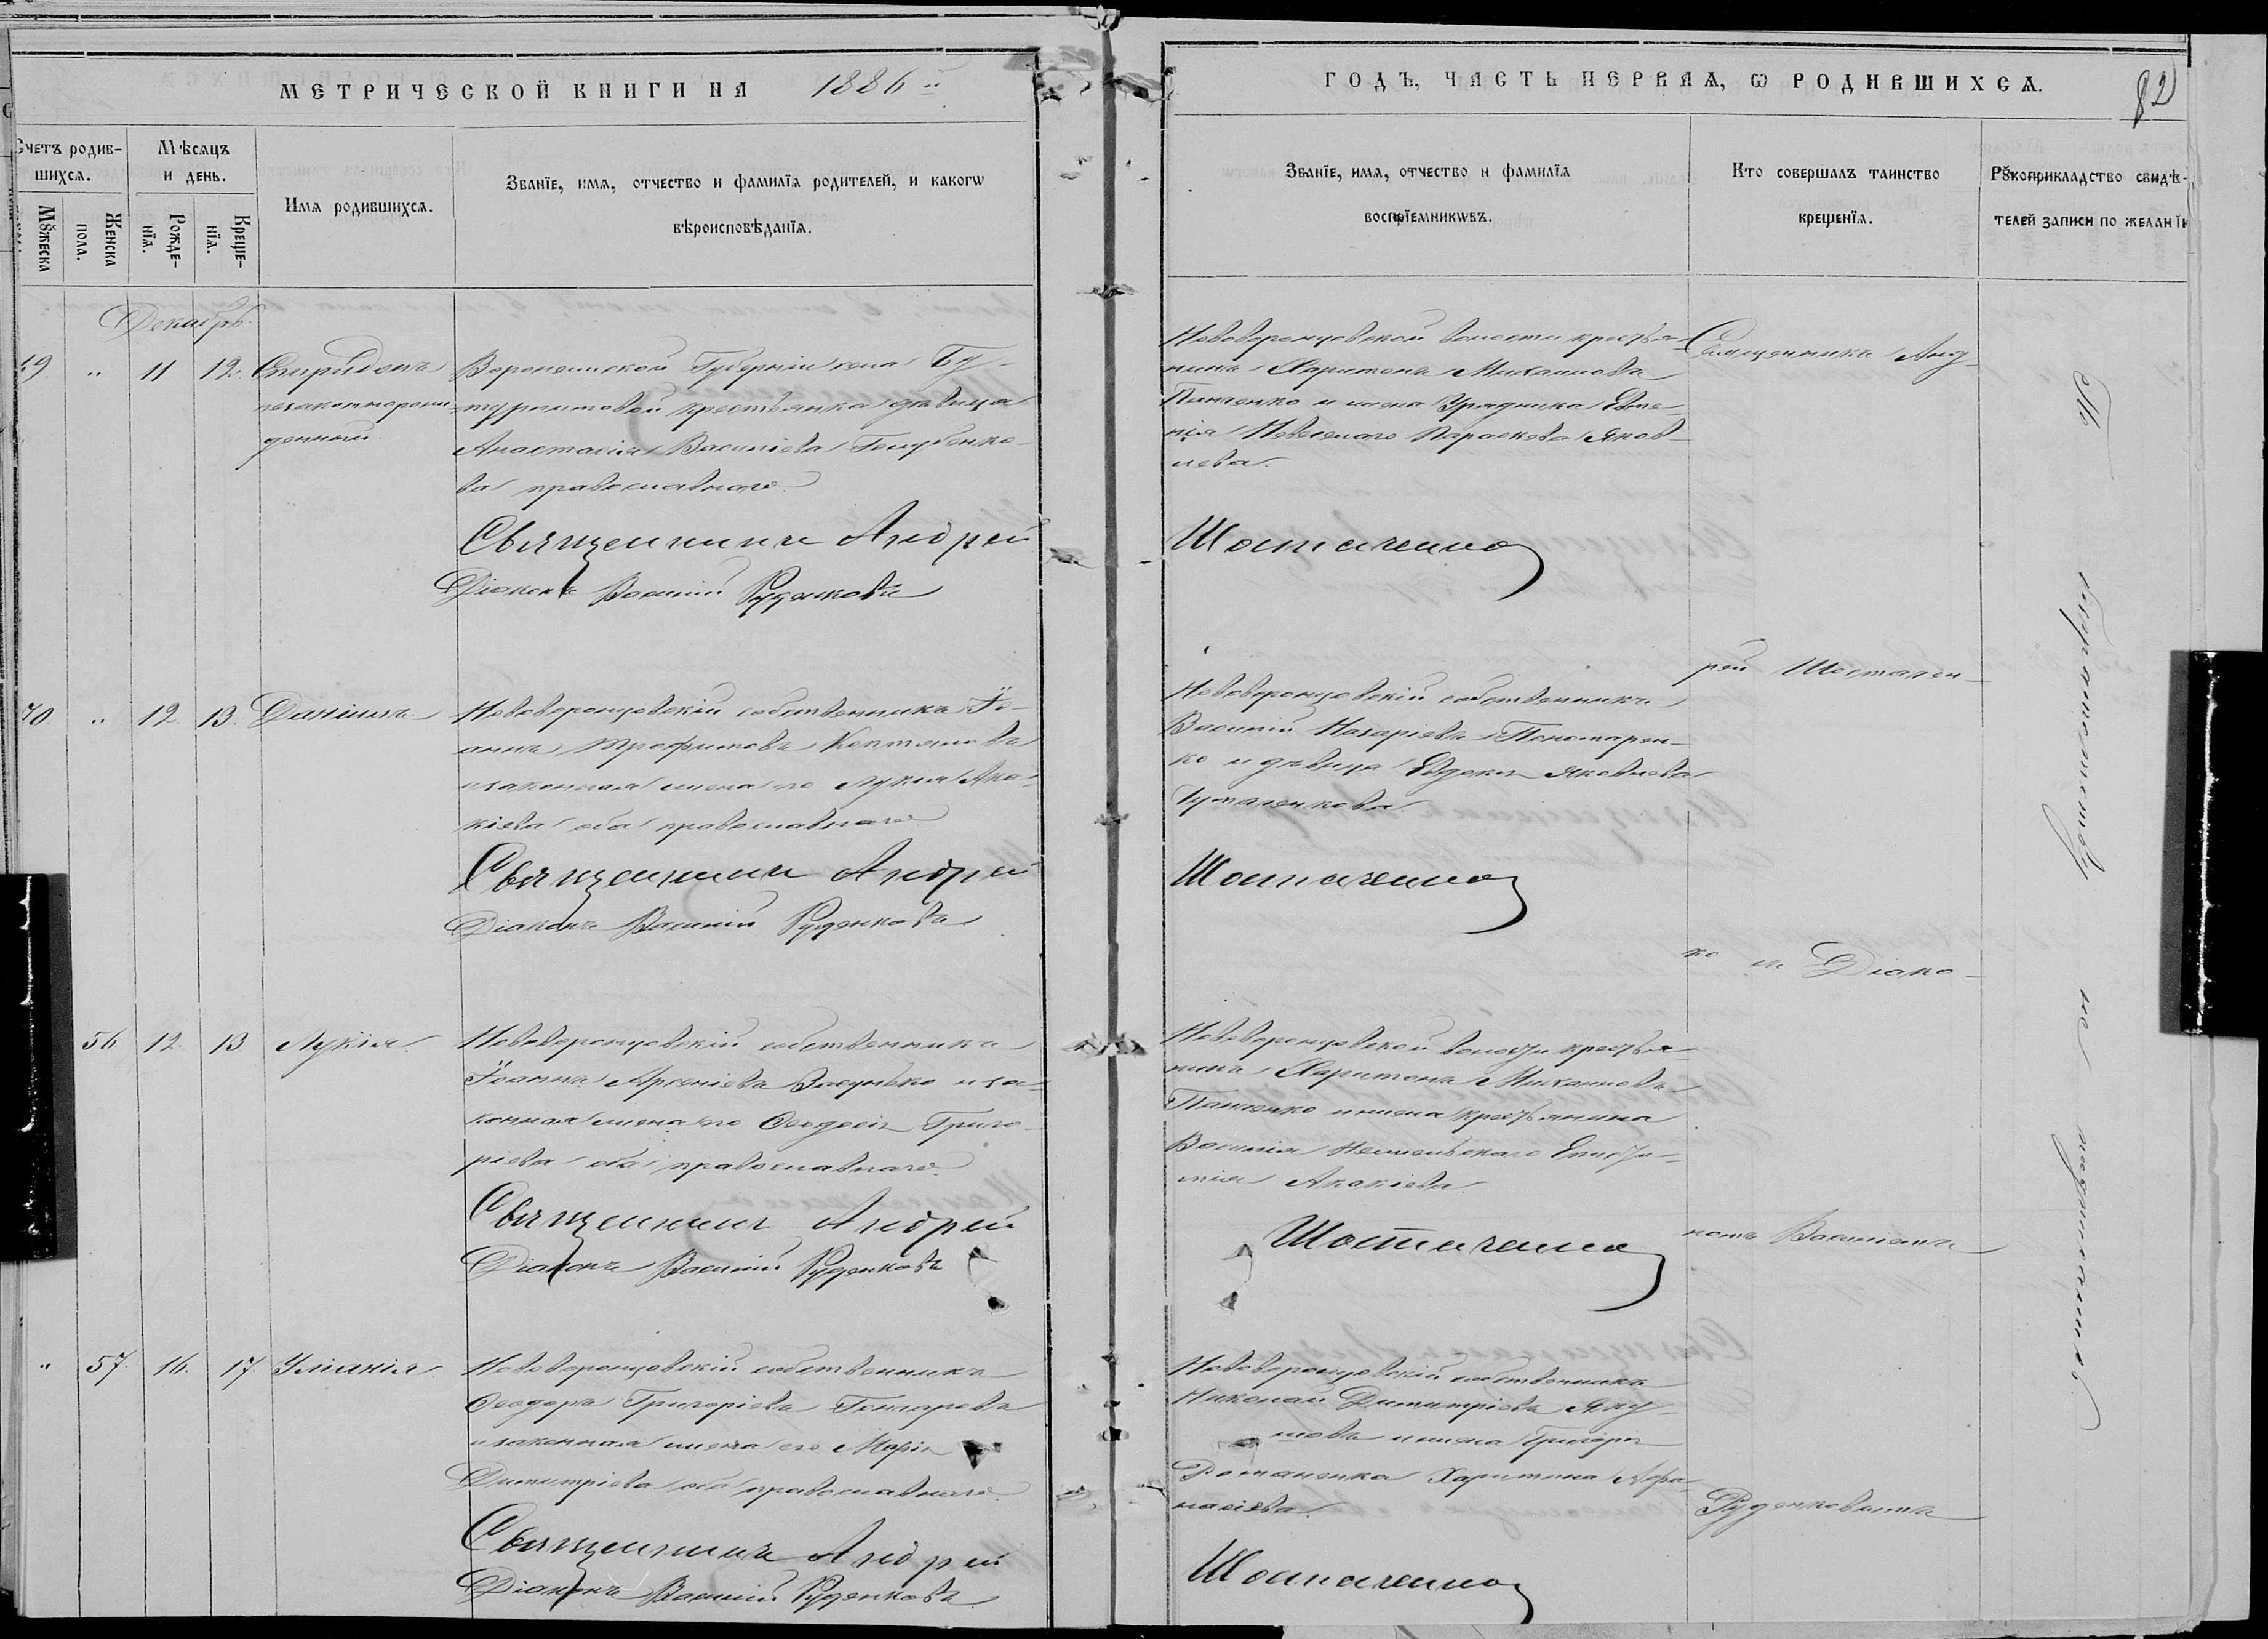 МЕТРИЧЕСКОЙ КНИГИ НА 1886й
ГОДЪ, ЧАСТЬ ПЕРВАЯ, Ѡ РОДИВШИХСѦ.
82
Счетъ родив-
шихсѧ.
Мꙋжеска
Женска
пола.
Мѣсѧцъ
и день.
Рожде-
нїѧ.
Креще-
нїѧ.
Имѧ родившихсѧ.
Званїе, имѧ, отчество и фамилїѧ родителей, и какогѡ
вѣроисповѣданїѧ.
Званїе, имѧ, отчество и фамилїѧ
воспрїемникѡвъ.
Кто совершалъ таинство
крещенїѧ.
Рꙋкоприкладство свидѣ-
телей записи по желанїю
Декабрь
11 12. Спиридонъ
незаконнорож-
денный
Воронежской Губерніи села Бу-
турлиновки крестьянка дѣвица
Анастасія Василіева Голубенко-
ва православнаго
Священникъ Андрей
Діаконъ Василій Руденковъ
Нововоронцовской волости крестья-
нинъ Харитонъ Михаиловъ
Панченко и жена Урядника Евге-
нія Параскева Яков-
лева.
Шостаченко
Священникъ Анд-
рей Шостачен-
ко и Діако-
номъ Василіемъ
Руденковымъ
" 12. 13. Даніилъ
Нововоронцовскій собственникъ Іо-
аннъ Трофимовъ
и законная жена его Лукія Ака-
кіева оба православнаго
Священникъ Андрей
Діаконъ Василій Руденковъ
Нововоронцовскій собственникъ
Василій Назаріевъ Пономарен-
ко и дѣвица Евдокія Яковлева
Шостаченко
56 12. 13 Лукія
Нововоронцовскій собственникъ
Іоаннъ Арсеніевъ и за-
конная жена его Ѳеодосія Григо-
ріева оба православнаго
Священникъ Андрей
Діаконъ Василій Руденковъ
Нововоронцовской волости крестья-
нинъ Харитонъ Михаиловъ
Панченко и жена крестьянина
Василія
Акакіева
Шостаченко
" 57. 16. 17. Уліанія
Нововоронцовскій собственникъ
Ѳеодоръ Григоріевъ Гончаровъ
и законная жена его Марія
Димитріева оба православнаго
Священникъ Андрей
Діаконъ Василій Руденковъ
Нововоронцовскій собственникъ
Николай Димитріевъ Яку-
шовъ и жена Григорія
Романенка Харитина Афа-
насіева.
Шостаченко